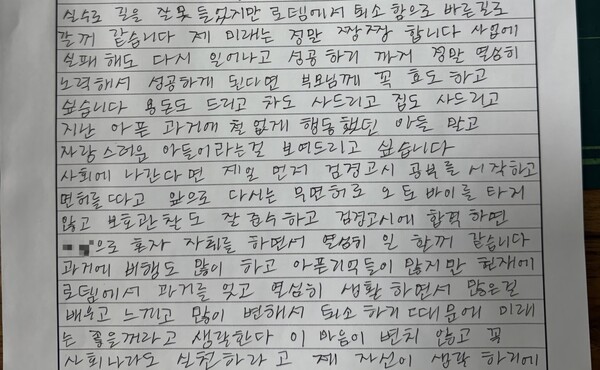 실수로 길을 잘못 들었지만 로뎀에서 퇴소 함으로 바른길로
갈꺼 같습니다 제 미래는 정말 짱짱 합니다 사업에
실패 해도 다시 일어나고 성공 하기 까지 정말 열심히
노력해서 성공하게 된다면 부모님께 꼭 효도 하고
싶습니다 용돈도 드리고 차도 사드리고 집도 사드리고
지난 아픈 과거에 철 없게 행동했던 아들 말고
자랑스러운 아들이라는걸 보여드리고 싶습니다
사회에 나간다면 제일 먼저 검정고시 공부를 시작하고
면허를 따고 앞으로 다시는 무면허로 오토바이를 타지
않고 보호관찰도 잘 준수하고 검정고시에 합격 하면
으로 혼자 자취를 하면서 열심히 일 할꺼 같습니다
과거에 비행도 많이 하고 아픈기억들이 많지만 현재에
로뎀에서 과거를 잊고 열심히 생활 하면서 많은걸
배우고 느끼고 많이 변해서 퇴소 하기 때문에 미래
는 좋을꺼라고 생각한다 이 마음이 변치 않고 꼭
사회나라도 실천하라고 제 자신이 생각 하기에